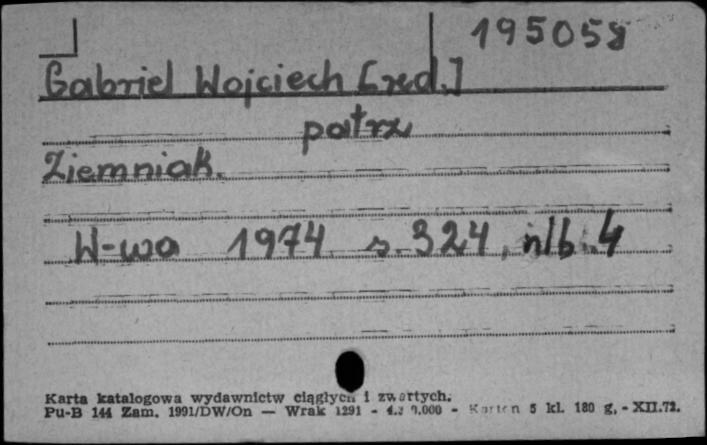 195058
Gabriel Wojciech [red.]
patrz
Ziemniak.
W-wa 1974 s. 324, nlb. 4
Karta katalogowa wydawnictw ciągłych i zwartych.
Pu-B 144 Zam. 1991/DW/On — Wrak 1291 - - Karton 5 kl. 180 g, - XII.72.